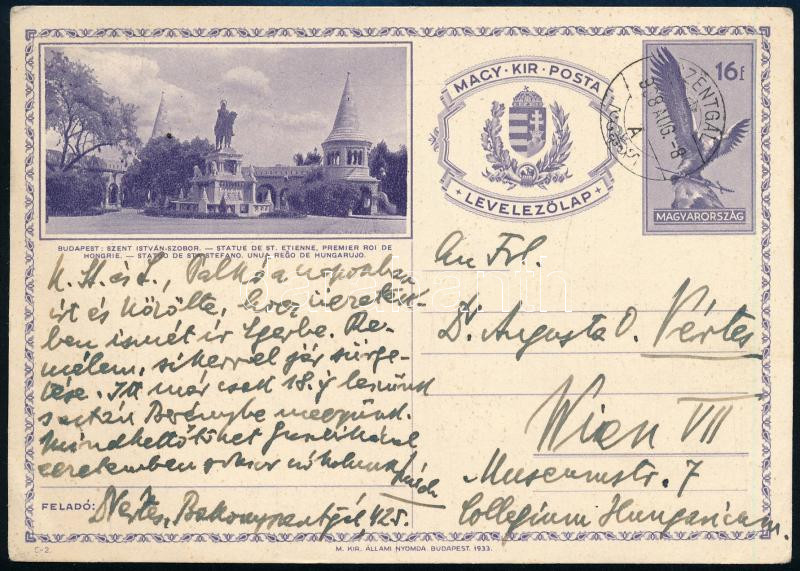 MAGY·KIR·POSTA
LEVELEZŐLAP
16 f
MAGYARORSZÁG
SZENTGÁL
938 AUG. -8
A
BUDAPEST: SZENT ISTVÁN-SZOBOR. — STATUE DE ST. ETIENNE, PREMIER ROI DE
HONGRIE. — STATUO DE STA STEFANO, UNUA REĜO DE HUNGARUJO.
írt és közölte, hogy
ben ismét ír Egerbe. Re-
mélem, sikerrel jár sürge-
tése. Itt már csak 18.-ig leszünk
s aztán Berénybe megyünk.
Mindkettőtöket
szeretettel
FELADÓ: Dr Vértes, Bakonyszentgál 425.
An Frl.
Dr. Augusta O. Vértes
Wien VII
Museumstr. 7
Collegium Hungaricum.
C-2.
M. KIR. ÁLLAMI NYOMDA. BUDAPEST. 1933.
darabanth